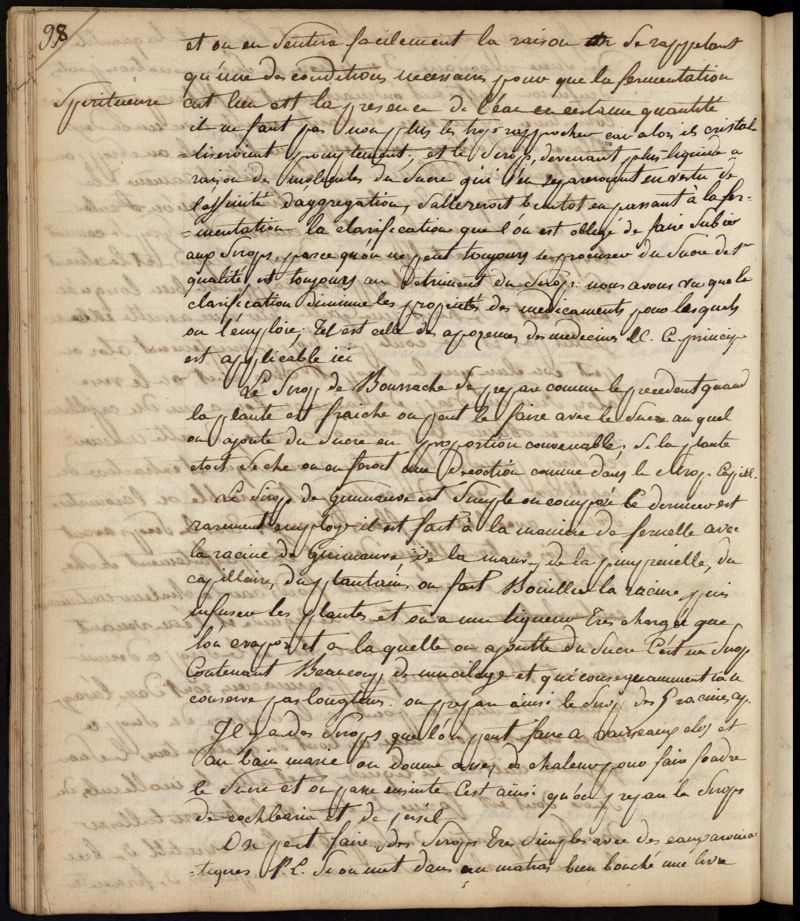 98
et on en sentira facilement la raison en se rappelant
qu'une des conditions necessaires pour que la fermentation
Spiritueuse
ait lieu est la presence de l'eau en certaine quantité
il ne faut pas non plus les trop rapprocher car alors ils cristal-
=liseroient promptement, et le Sirop, devenant plus liquide a
raison des molecules du Sucre qui s'en separeroient en vertu de
l'affinité d'aggregation, s'altereroit bientot en passant à la fer-
=mentation. la clarification que l'on est obligé de faire subir
aux Sirops, parce qu'on ne peut toujours se procurer du Sucre de 1re
qualité est toujours au detriment du Sirop. nous avons vu que la
clarification diminue les proprietés des medicaments pour lesquels
on l'emploie; tel est celle des apozemes des medecines &c. Ce princip
est applicable ici
Le Sirop de Bourrache se prepare comme le precedent quand
la plante est fraiche on peut le faire avec le Suc au quel
on ajoute du Sucre en proportion convenable. Si la plante
etoit Seche on en feroit une Decoction comme dans le Sirop Capill.
Le Sirop de guimauve est Simple ou composé Le dernier est
rarement employé il est fait à la maniere de fernelle avec
la racine de Guimauve de la mauve, de la pimprenelle, du
capillaire, du plantain, on fait Bouillir la racine, puis
infuser les plantes et on a une liqueur tres chargée que
l'on evapore et a la quelle on ajoutte du Sucre C'est un Sirop
Contenant Beaucoup de mucilage et qui consequamment ne se
conserve pas longtems. on prepare ainsi le Sirop des 5 racines ap.
Il y a des Sirops que l'on peut faire a vaisseaux clos et
au bain marie on donne assez de chaleur pour faire fondre
le Sucre et on passe ensuite C'est ainsi qu'on prepare le Sirops
de cochlearia et de persil
On peut faire des Sirops tres Simples avec des eaux aroma-
tiques P. E. Si on met dans un matras bien bouché une livre